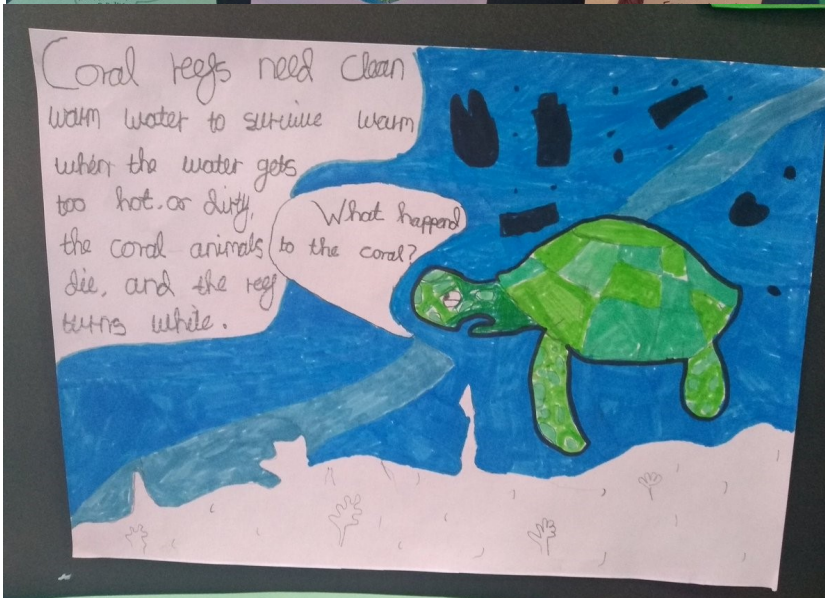 Coral reefs need clean
warm water to survive warm
when the water gets
too hot. or dirty,
the coral animals
die, and the reef
turns white.
What happend
to the coral?